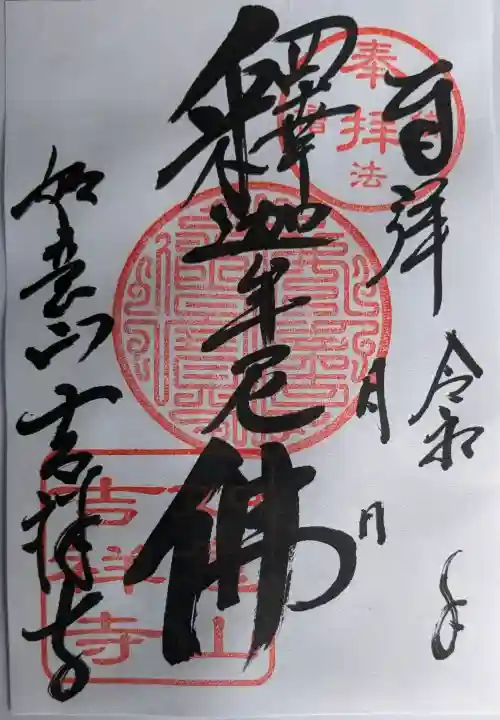 百祥
令和 年
月 日
釋迦牟尼佛
如意山 吉祥寺
奉拝
法
吉祥寺